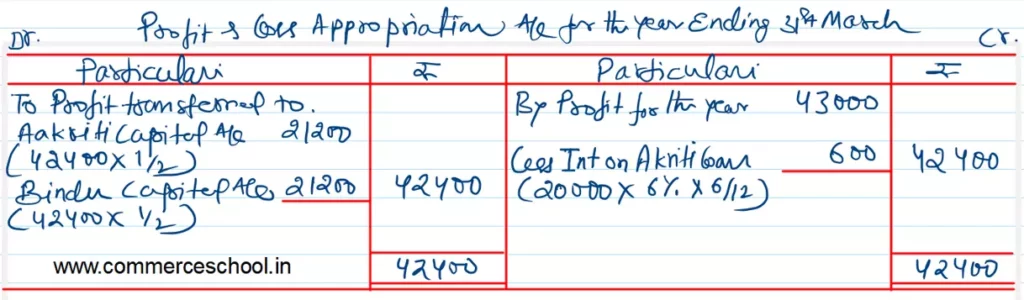 Profit & Loss Appropriation A/c for the year Ending 31st March
Dr. Cr.
Particulars ₹ Particulars ₹
To Profit transferred to. By Profit for the year 43000
Aakriti Capital A/c 21200
(42400 X 1/2) Less Int on Akriti loan 600 42400
Bindu Capital A/c 21200 42400 (20000 X 6% X 6/12)
(42400 X 1/2)
www.commerceschool.in 42400 42400